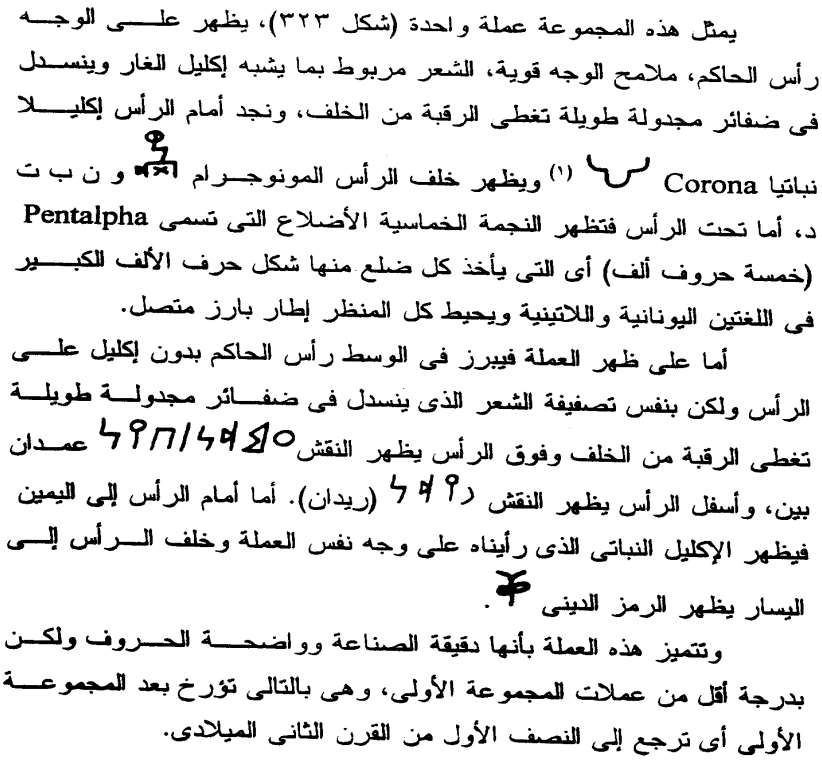 يمثل هذه المجموعة عملة واحدة (شكل ٣٢٣)، يظهر على الوجه
رأس الحاكم، ملامح الوجه قوية، الشعر مربوط بما يشبه إكليل الغار وينسدل
فى ضفائر مجدولة طويلة تغطى الرقبة من الخلف، ونجد أمام الرأس إكليلا
نباتيا Corona (١) ويظهر خلف الرأس المونوجرام و ن ب ت
د، أما تحت الرأس فتظهر النجمة الخماسية الأضلاع التى تسمى Pentalpha
(خمسة حروف ألف) أى التى يأخذ كل ضلع منها شكل حرف الألف الكبير
فى اللغتين اليونانية واللاتينية ويحيط كل المنظر إطار بارز متصل.
أما على ظهر العملة فيبرز فى الوسط رأس الحاكم بدون إكليل على
الرأس ولكن بنفس تصفيفة الشعر الذى ينسدل فى ضفائر مجدولة طويلة
تغطى الرقبة من الخلف وفوق الرأس يظهر النقش 𐩲𐩣𐩵𐩬𐩽𐩨𐩺𐩬 عمدان
بين، وأسفل الرأس يظهر النقش 𐩧𐩺𐩵𐩬 (ريدان). أما أمام الرأس إلى اليمين
فيظهر الإكليل النباتى الذى رأيناه على وجه نفس العملة وخلف الرأس إلى
اليسار يظهر الرمز الدينى .
وتتميز هذه العملة بأنها دقيقة الصناعة وواضحة الحروف ولكن
بدرجة أقل من عملات المجموعة الأولى، وهى بالتالى تؤرخ بعد المجموعة
الأولى أى ترجع إلى النصف الأول من القرن الثانى الميلادى.